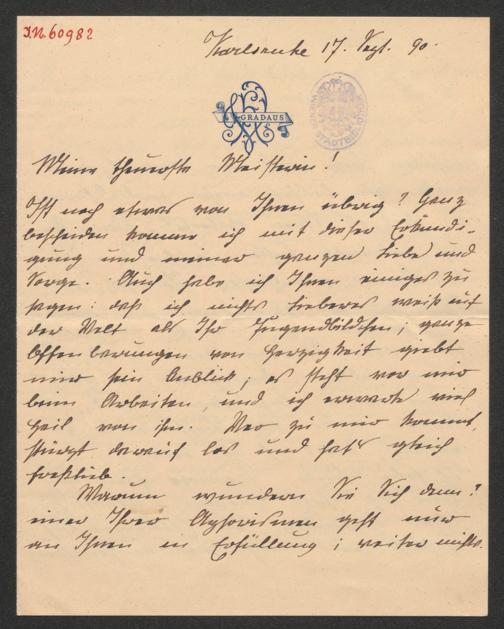 I.N. 60982
Karlsruhe 17. Sept. 90.
GRADAUS
WIENER STADTBIBLIOTHEK
Meine theuerste Meisterin!
Ist noch etwas von Ihnen übrig? Ganz
bescheiden komme ich mit dieser Erkundi-
gung und meiner ganzen Liebe und
Sorge. Auch habe ich Ihnen einiges zu
sagen: daß ich nichts lieberes weiß auf
der Welt als Ihr Jugendbildchen; ganze
Offenbarungen von Herzigkeit giebt
mir sein Anblick; es steht vor mir
beim Arbeiten, und ich erwarte viel
Heil von ihm. Wer zu mir kommt,
stürzt darauf los und hat's gleich
Warum wundern Sie Sich denn?
einer Ihrer Aphorismen geht nur
an Ihnen in Erfüllung; weiter nichts.